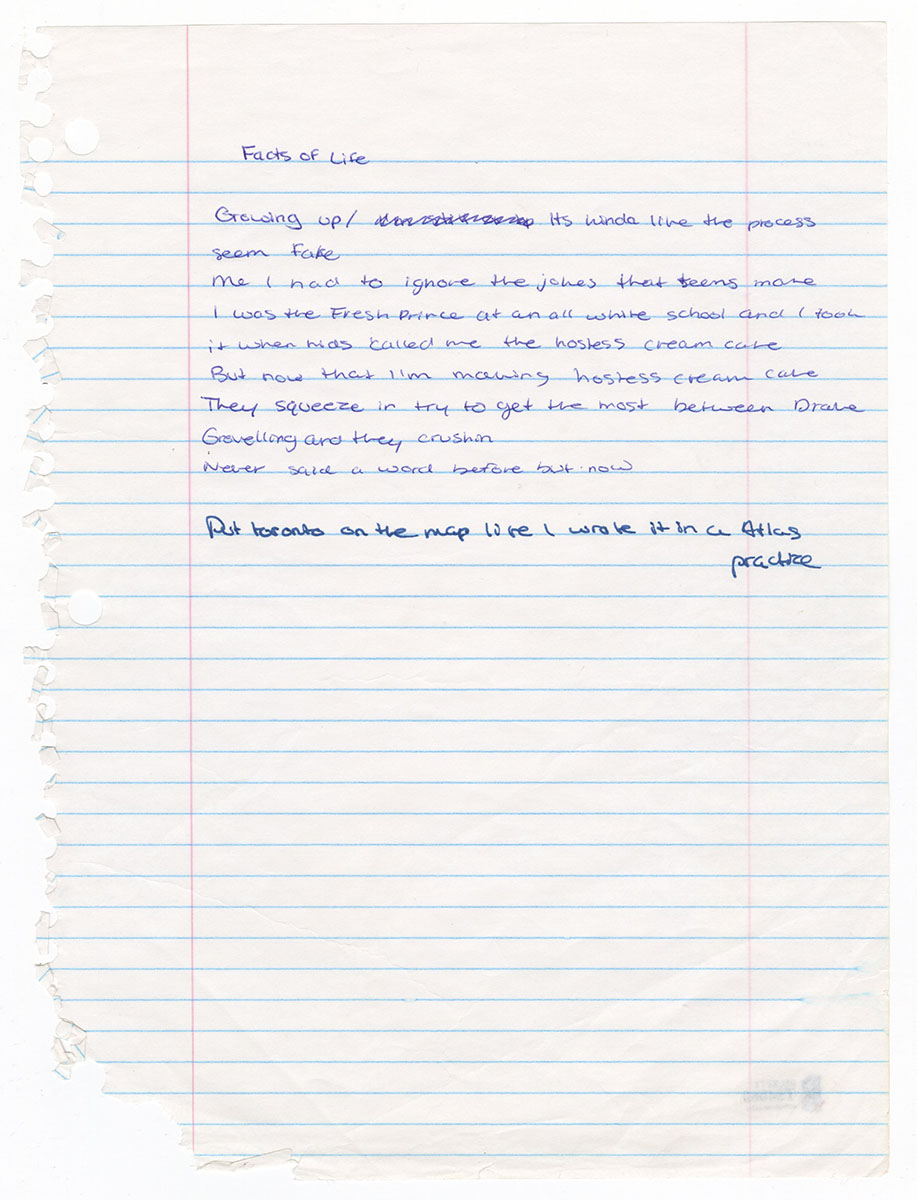 Facts of Life
Growing up/ Its kinda like the process
seem fake
Me I had to ignore the jokes that teens make
I was the Fresh Prince at an all white school and I took
it when kids called me the hostess cream cake
But now that I'm making hostess cream cake
They squeeze in try to get the most between Drake
Grovelling and they crushin
Never said a word before but now
Put toronto on the map like I wrote it in a Atlas
practice